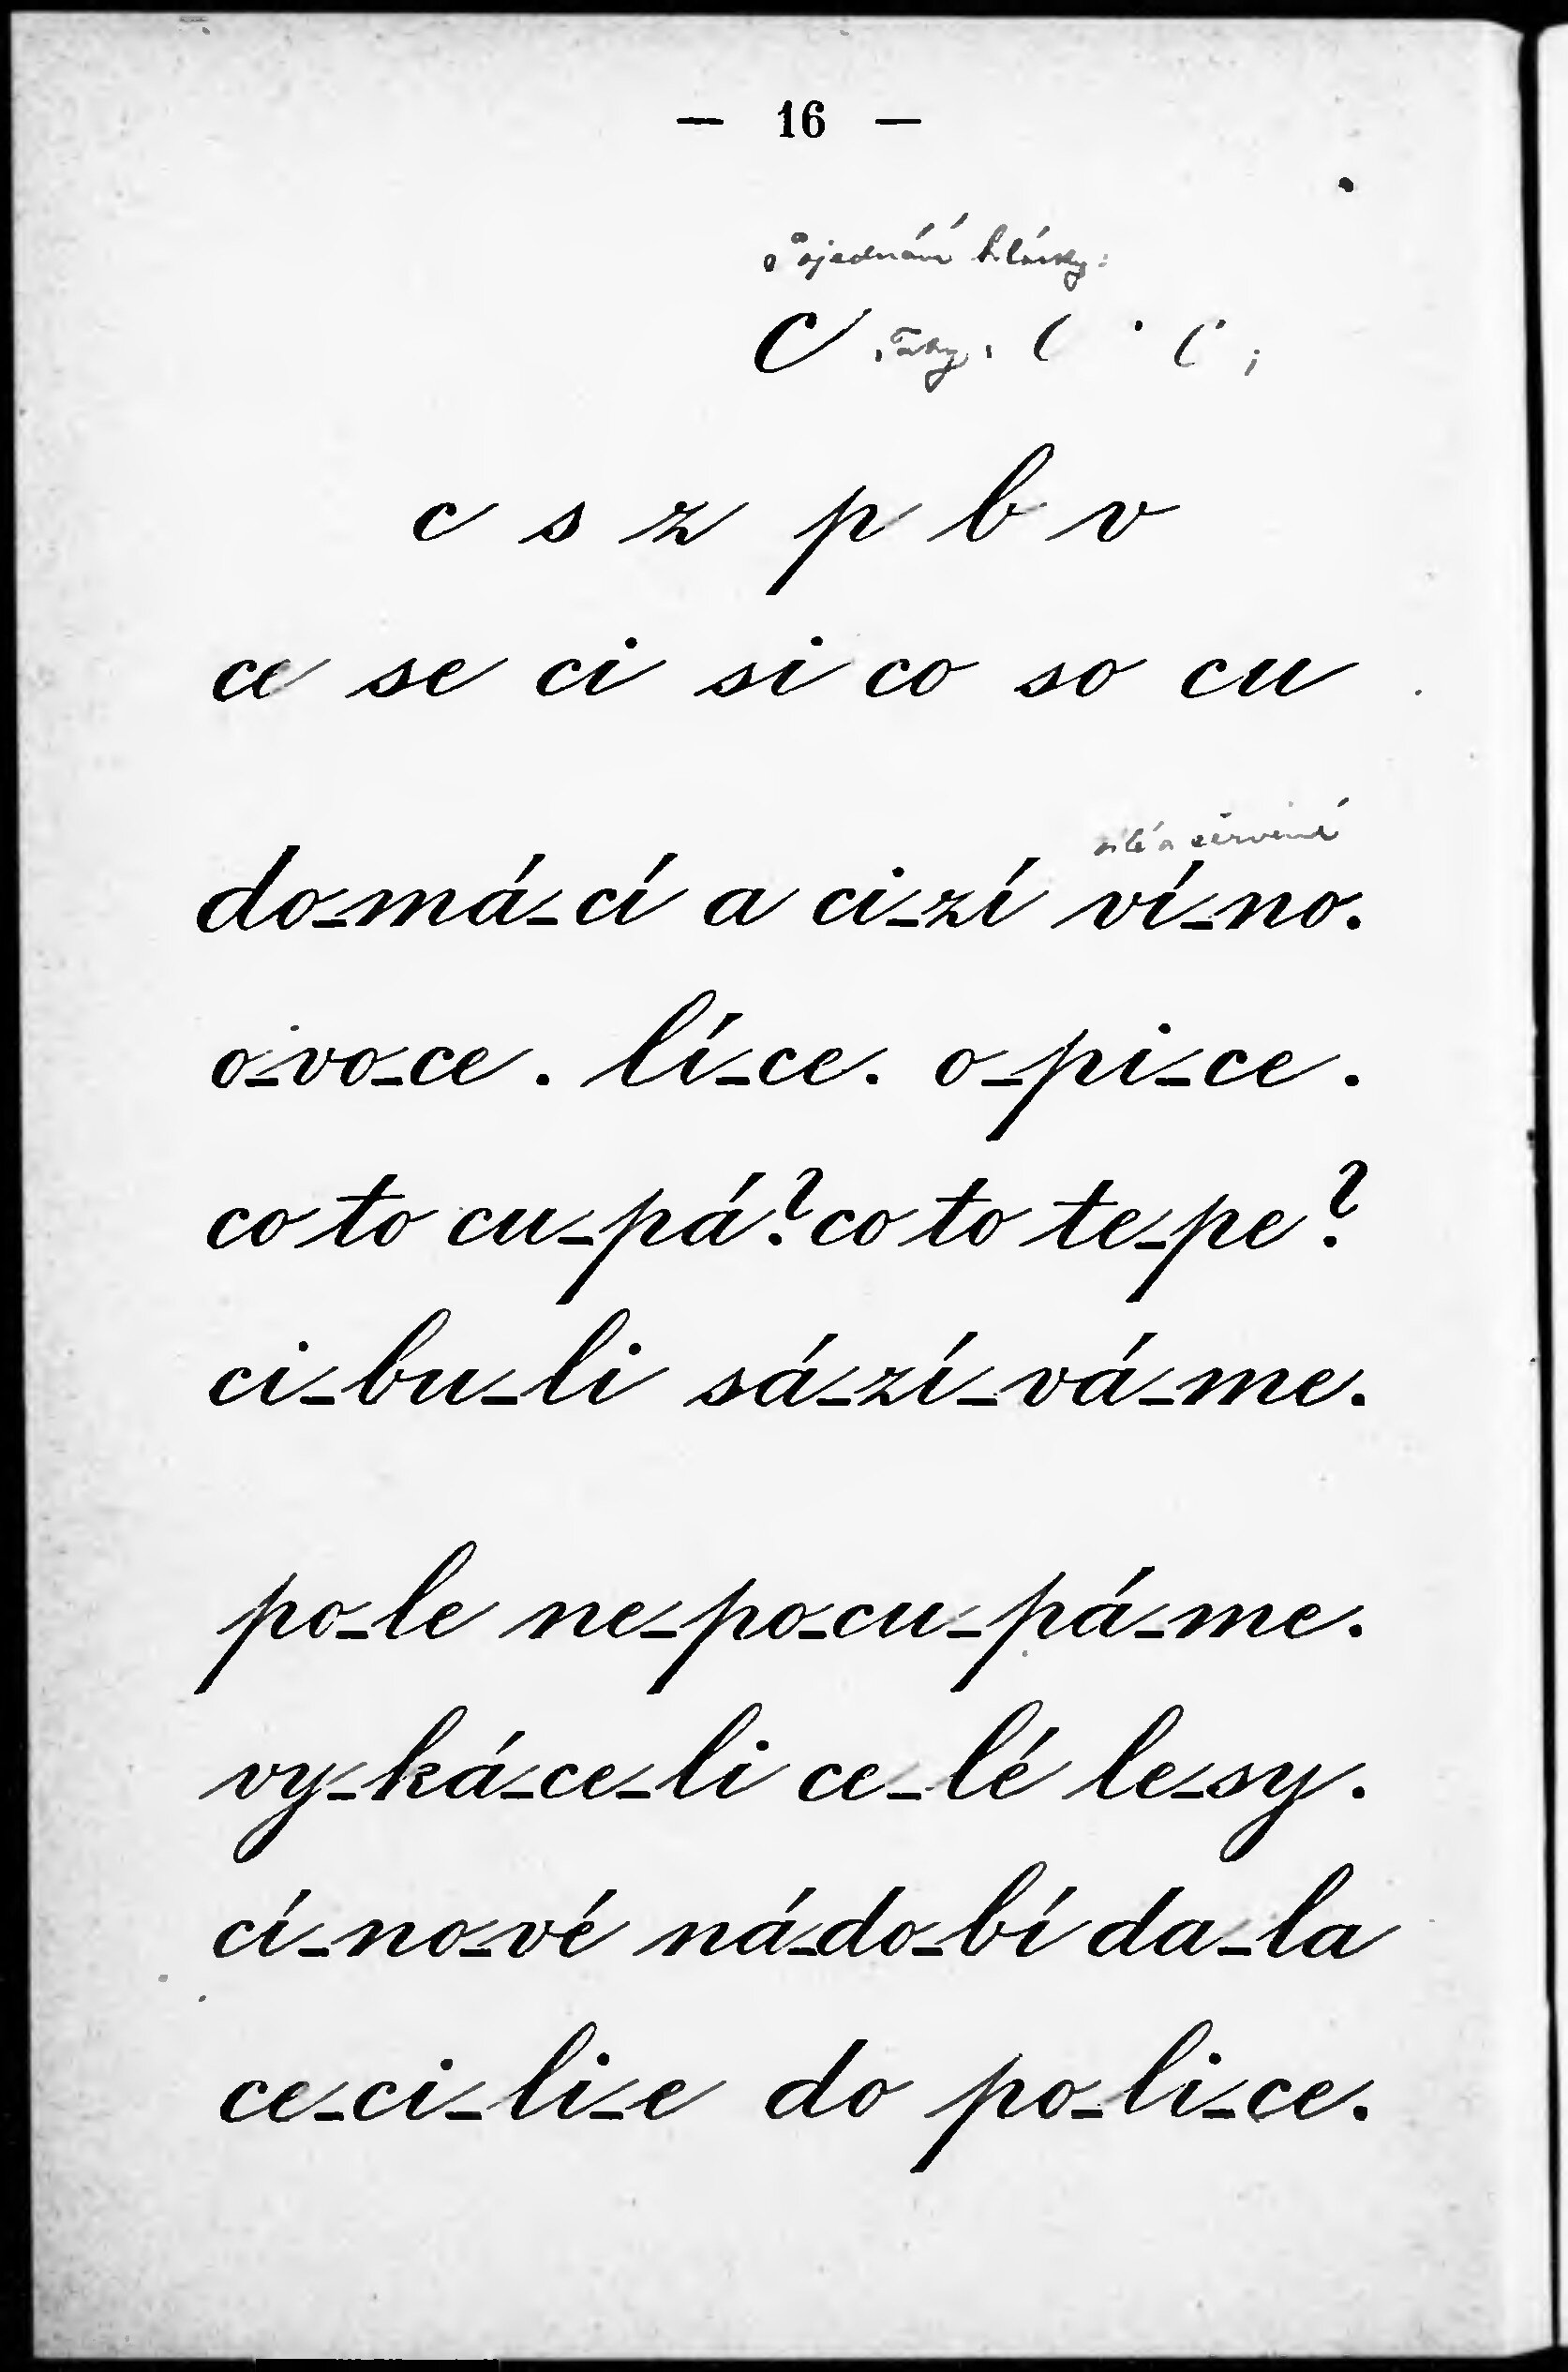 — 16 —
Pojednání hlásky:
c Tahy:
c s z p b v
ce se ci si co so cu
bílé a červené
do-má-cí a ci-zí ví-no.
o-vo-ce. lí-ce. o-pi-ce.
co to cu-pá? co to te-pe?
ci-bu-li sá-zí-vá-me.
po-le ne-po-cu-pá-me.
vy-ká-ce-li ce-lé le-sy.
cí-no-vé ná-do-bí da-la
ce-ci-li-e do po-li-ce.